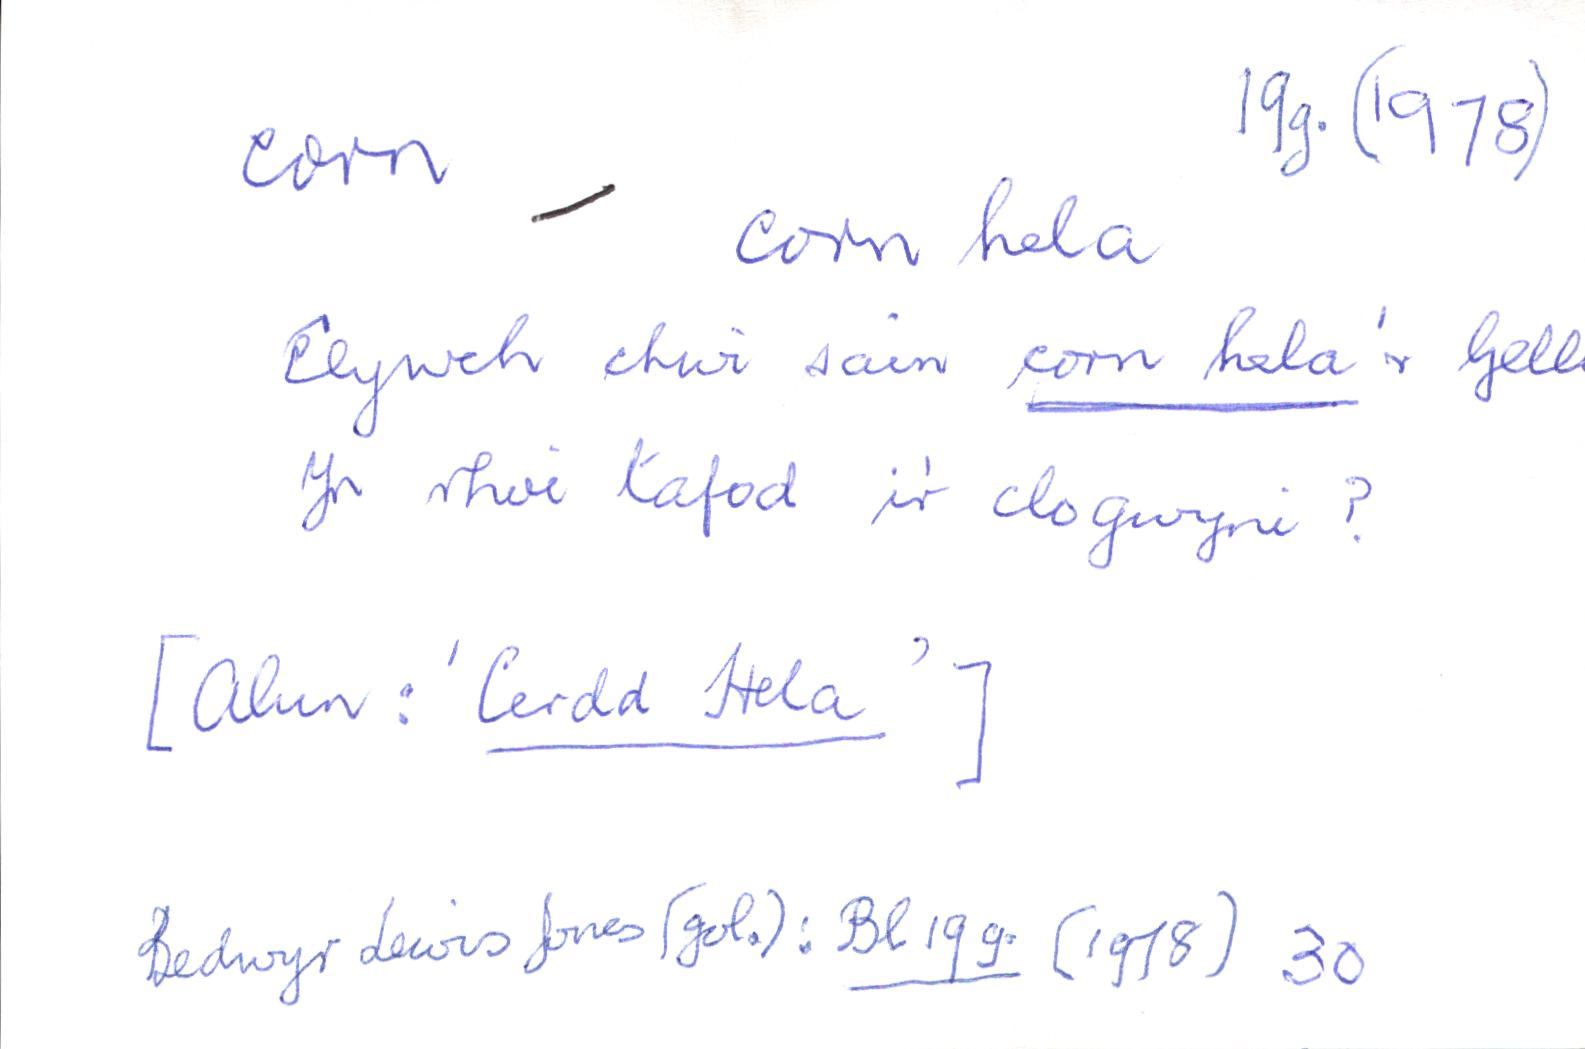 19g. (1978)
corn
corn hela
Clywch chwi sain corn hela'r Gelli
Yn rhoi tafod i'r clogwyni?
[Alun: 'Cerdd Hela']
Bedwyr Lewis Jones (gol.): Bl 19g. (1978) 30